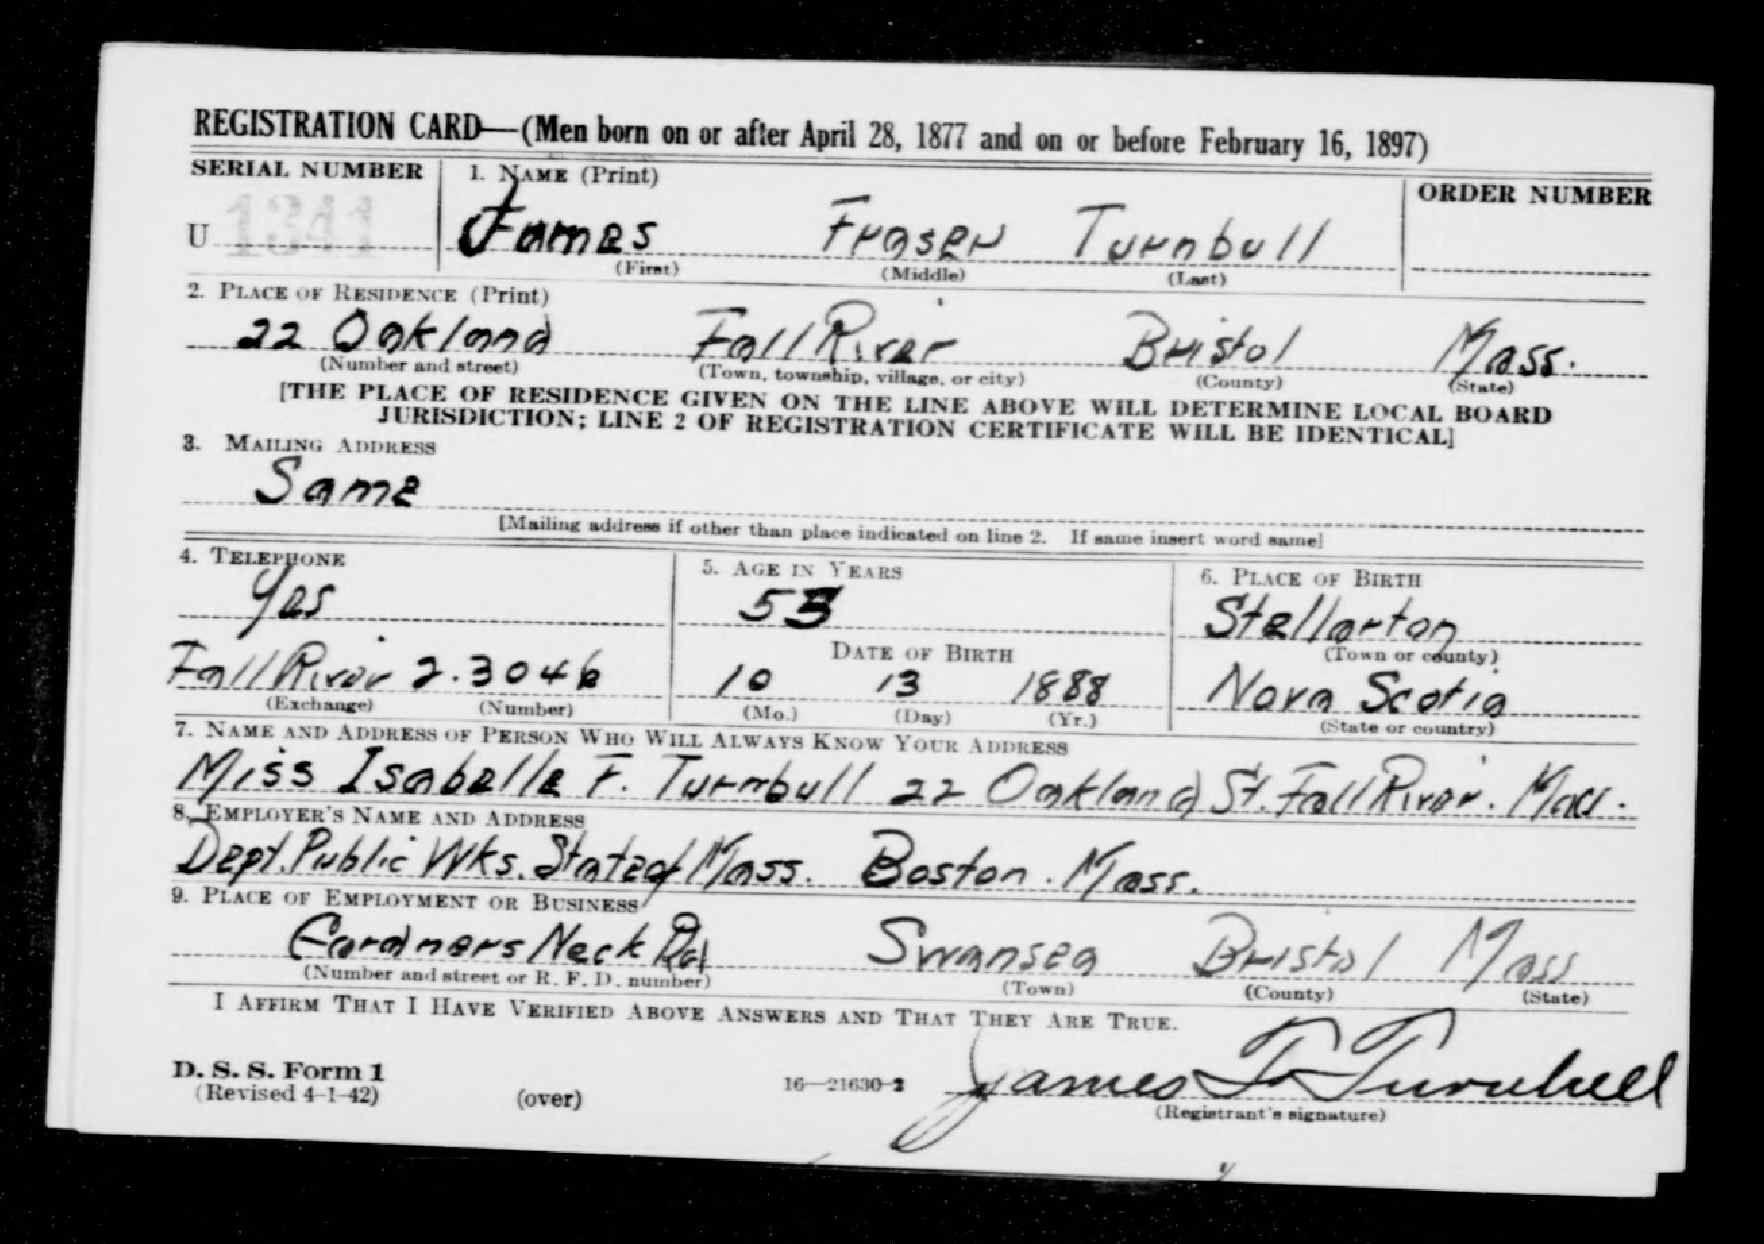 REGISTRATION CARD—(Men born on or after April 28, 1877 and on or before February 16, 1897)
SERIAL NUMBER 1. NAME (Print) ORDER NUMBER
U James Fraser Turnbull
(First) (Middle) (Last)
2. PLACE OF RESIDENCE (Print)
22 Oakland Fall River Bristol Mass.
(Number and street) (Town, township, village, or city) (County) (State)
[THE PLACE OF RESIDENCE GIVEN ON THE LINE ABOVE WILL DETERMINE LOCAL BOARD
JURISDICTION; LINE 2 OF REGISTRATION CERTIFICATE WILL BE IDENTICAL]
3. MAILING ADDRESS
Same
[Mailing address if other than place indicated on line 2. If same insert word same]
4. TELEPHONE 5. AGE IN YEARS 6. PLACE OF BIRTH
Yes 53 Stellarton
DATE OF BIRTH (Town or county)
Fall River 2.3046 10 13 1888 Nova Scotia
(Exchange) (Number) (Mo.) (Day) (Yr.) (State or country)
7. NAME AND ADDRESS OF PERSON WHO WILL ALWAYS KNOW YOUR ADDRESS
Miss Isabelle F. Turnbull 22 Oakland St. Fall River. Mass.
8. EMPLOYER'S NAME AND ADDRESS
Dept. Public Wks. State of Mass. Boston. Mass.
9. PLACE OF EMPLOYMENT OR BUSINESS
Gardners Neck Rd Swansea Bristol Mass
(Number and street or R. F. D. number) (Town) (County) (State)
I AFFIRM THAT I HAVE VERIFIED ABOVE ANSWERS AND THAT THEY ARE TRUE.
D. S. S. Form 1
(Revised 4-1-42) (over) 16—21630-2 James F Turnbull
(Registrant's signature)